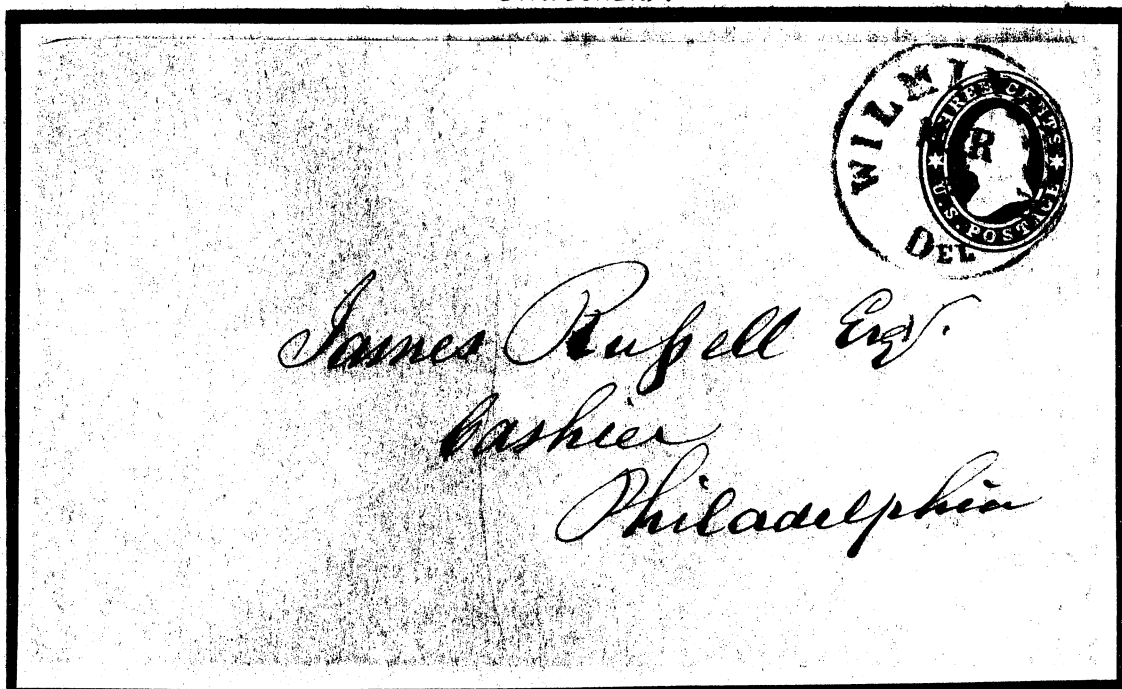 WILMI
DEL
THREE CENTS
U.S. POSTAGE
James Russell Esqr.
Cashier
Philadelphia